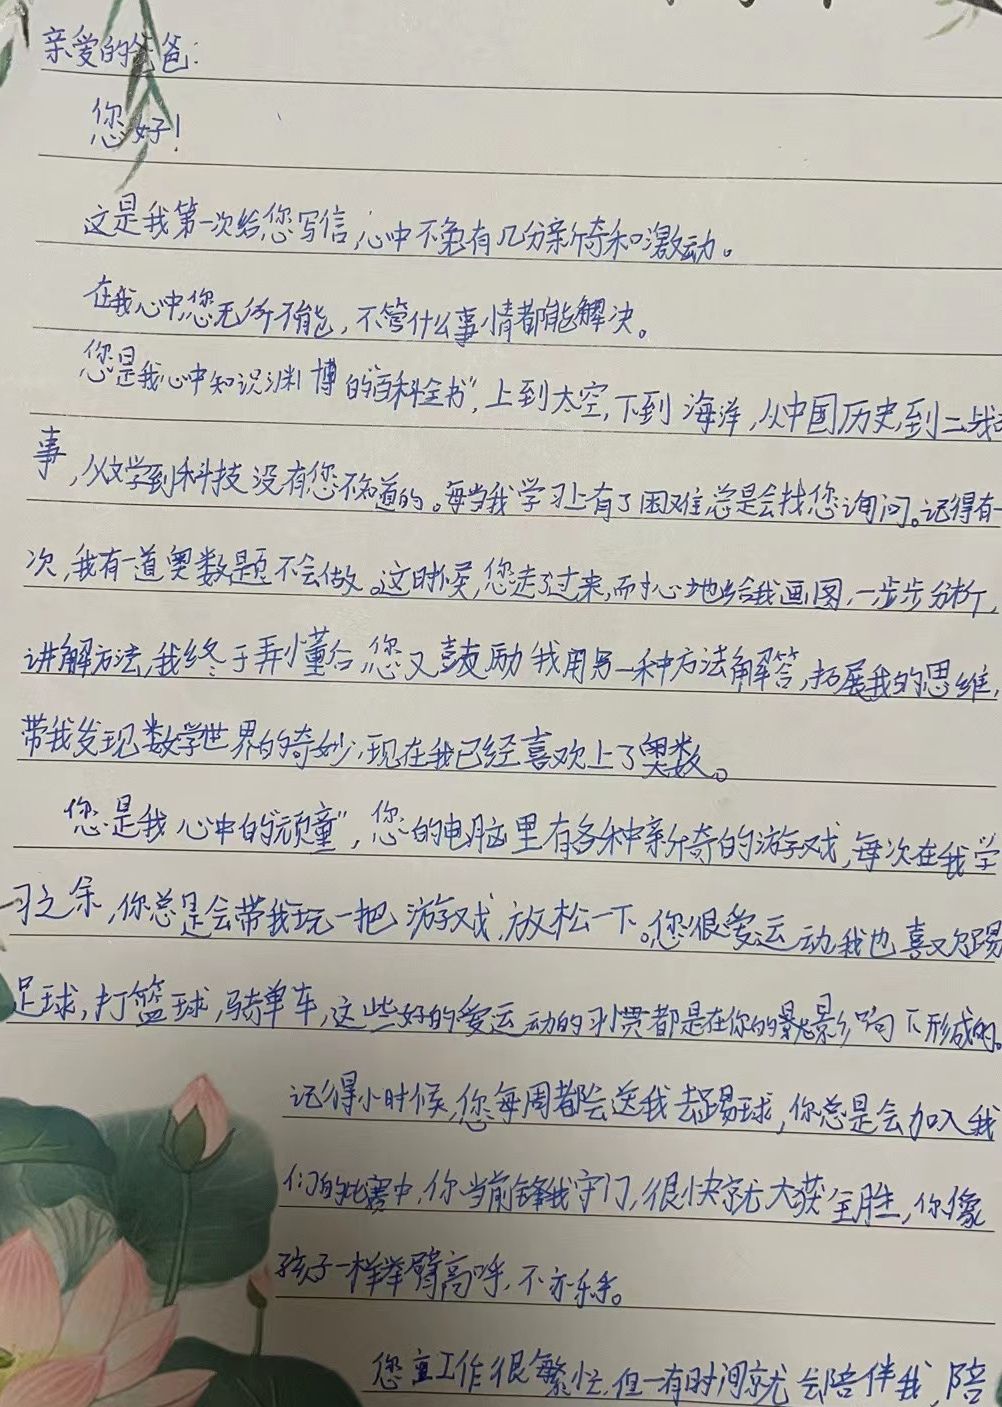 亲爱的爸爸:
您好!
这是我第一次给您写信,心中不免有几分新奇和激动。
在我心中您无所不能,不管什么事情都能解决。
您是我心中知识渊博的“百科全书”,上到太空,下到海洋,从中国历史到二战
事,从文学到科技没有您不知道的。每当我学习上有了困难总是会找您询问。记得有一
次,我有一道奥数题不会做。这时候,您走了过来,耐心地给我画图,一步步分析,
讲解方法,我终于弄懂后,您又鼓励我用另一种方法解答,拓展我的思维,
带我发现数学世界的奇妙,现在我已经喜欢上了奥数。
您是我心中的“顽童”,您的电脑里有各种新奇的游戏,每次在我学
习之余,你总是会带我玩一把游戏,放松一下。您很爱运动我也喜欢踢
足球,打篮球,骑单车,这些好的爱运动的习惯都是在你的影响下形成的。
记得小时候,您每周都会送我去踢球,你总是会加入我
们的比赛中,你当前锋我守门,很快就大获全胜,你像
孩子一样举臂高呼,不亦乐乎。
您工作很繁忙,但一有时间就会陪伴我,陪